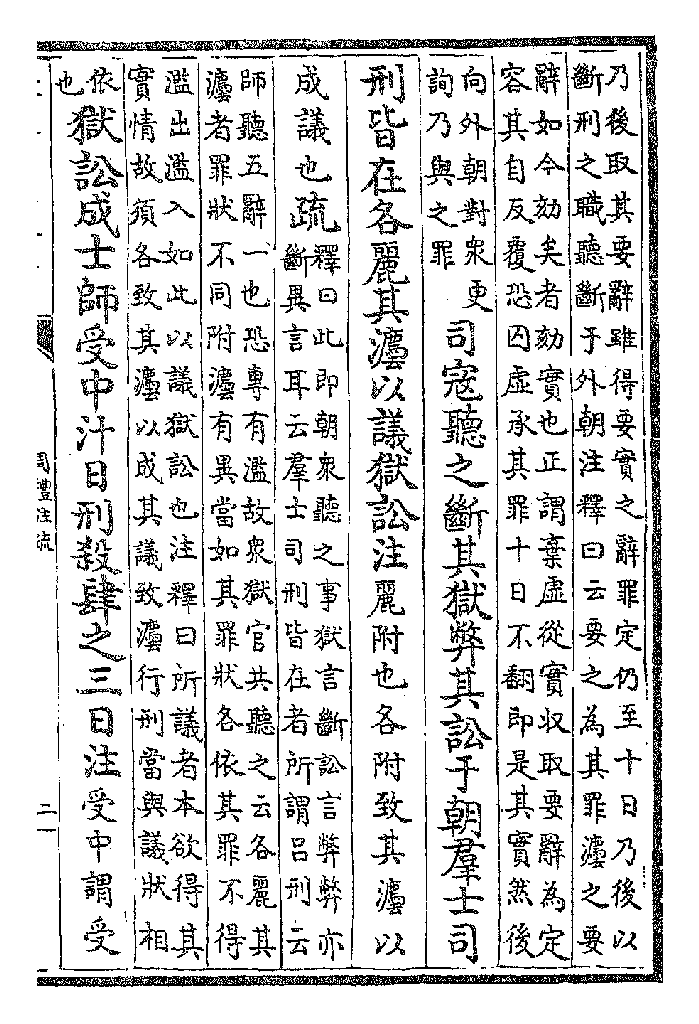 乃後取其要辭雖得要實之辭罪定仍至十日乃後以
斷刑之職聽斷于外朝注釋曰云要之為其罪灋之要
辭如今劾矣者劾實也正謂棄虛從實收取要辭為定
容其自反覆恐囚虛承其罪十日不翻即是其實然後
向外朝對衆更
詢乃與之罪
司寇聽之斷其獄弊其訟于朝羣士司
刑皆在各麗其灋以議獄訟注麗附也各附致其灋以
成議也疏
釋曰此即朝衆聽之事獄言斷訟言弊弊亦
斷異言耳云羣士司刑皆在者所謂呂刑云
師聽五辭一也恐專有濫故衆獄官共聽之云各麗其
灋者罪狀不同附灋有異當如其罪狀各依其罪不得
濫出濫入如此以議獄訟也注釋曰所議者本欲得其
實情故須各致其灋以成其議致灋行刑當與議狀相
依
也
獄訟成士師受中汁日刑殺肆之三日注受中謂受
周禮注疏
二